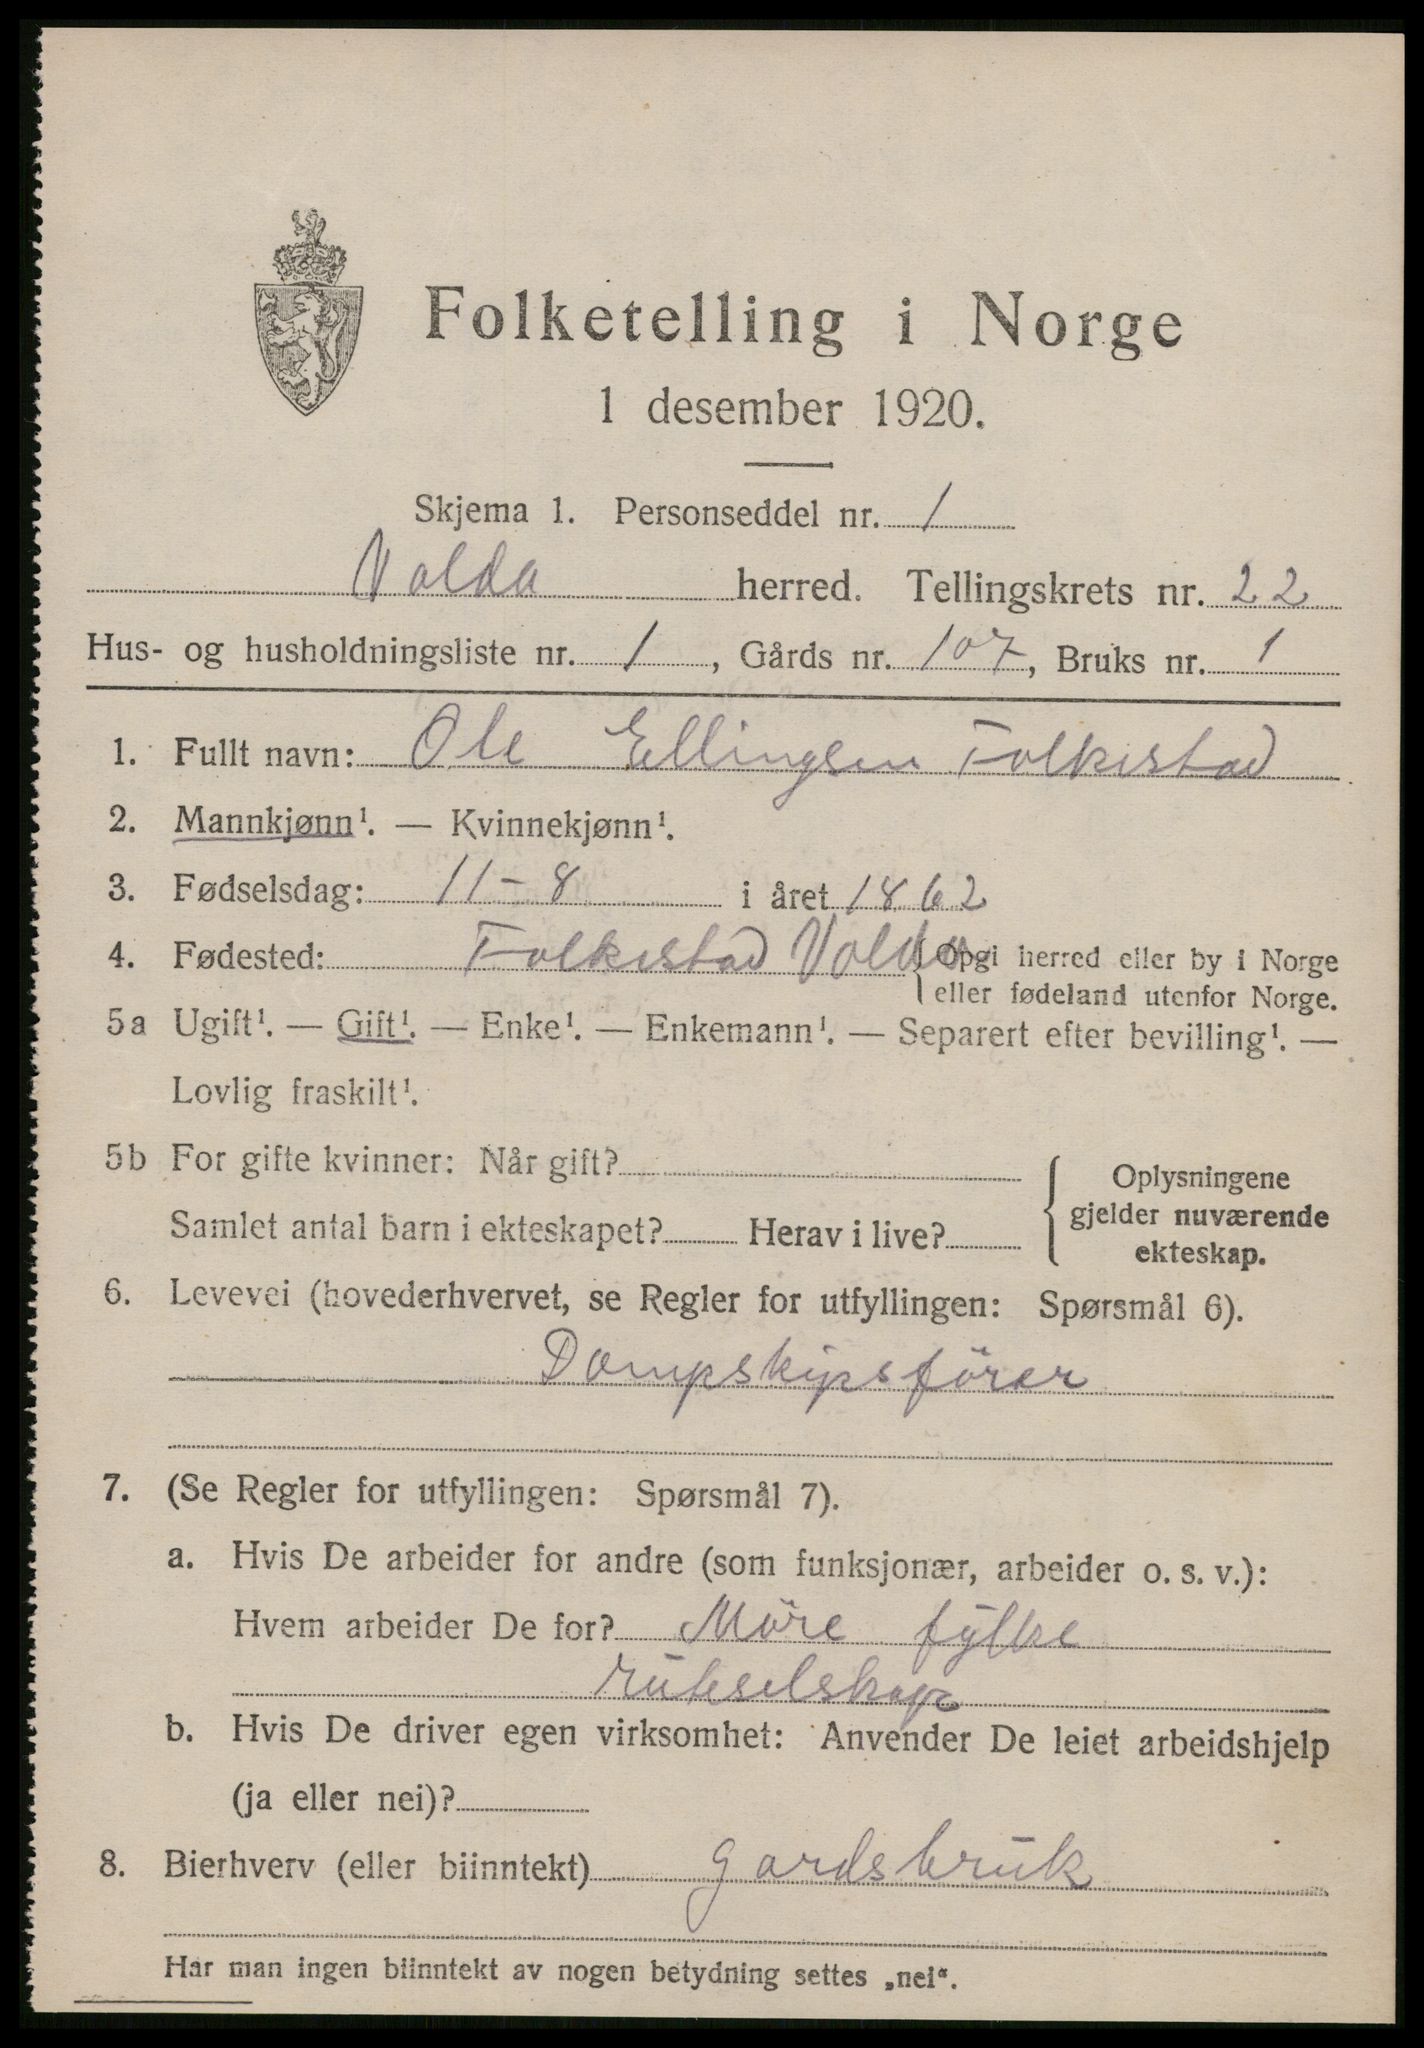 Folketelling i Norge
1 desember 1920.
Skjema 1. Personseddel nr. 1
Volda herred. Tellingskrets nr. 22
Hus- og husholdningsliste nr. 1, Gårds nr. 107, Bruks nr. 1
1. Fullt navn: Ole Ellingsen Folkestad
2. Mannkjønn¹. — Kvinnekjønn¹.
3. Fødselsdag: 11-8 i året 1862
4. Fødested: Folkestad Volda {Opgi herred eller by i Norge
eller fødeland utenfor Norge.
5a Ugift¹. — Gift¹. — Enke¹. — Enkemann¹. — Separert efter bevilling¹. —
Lovlig fraskilt¹.
5b For gifte kvinner: Når gift?
Samlet antal barn i ekteskapet? Herav i live?
Oplysningene
gjelder nuværende
ekteskap.
6. Levevei (hovederhvervet, se Regler for utfyllingen: Spørsmål 6).
Dampskipsförer
7. (Se Regler for utfyllingen: Spørsmål 7).
a. Hvis De arbeider for andre (som funksjonær, arbeider o. s. v.):
Hvem arbeider De for? Möre fylke
ruteselskap
b. Hvis De driver egen virksomhet: Anvender De leiet arbeidshjelp
(ja eller nei)?
8. Bierhverv (eller biinntekt) Gardsbruk
Har man ingen biinntekt av nogen betydning settes „nei“.